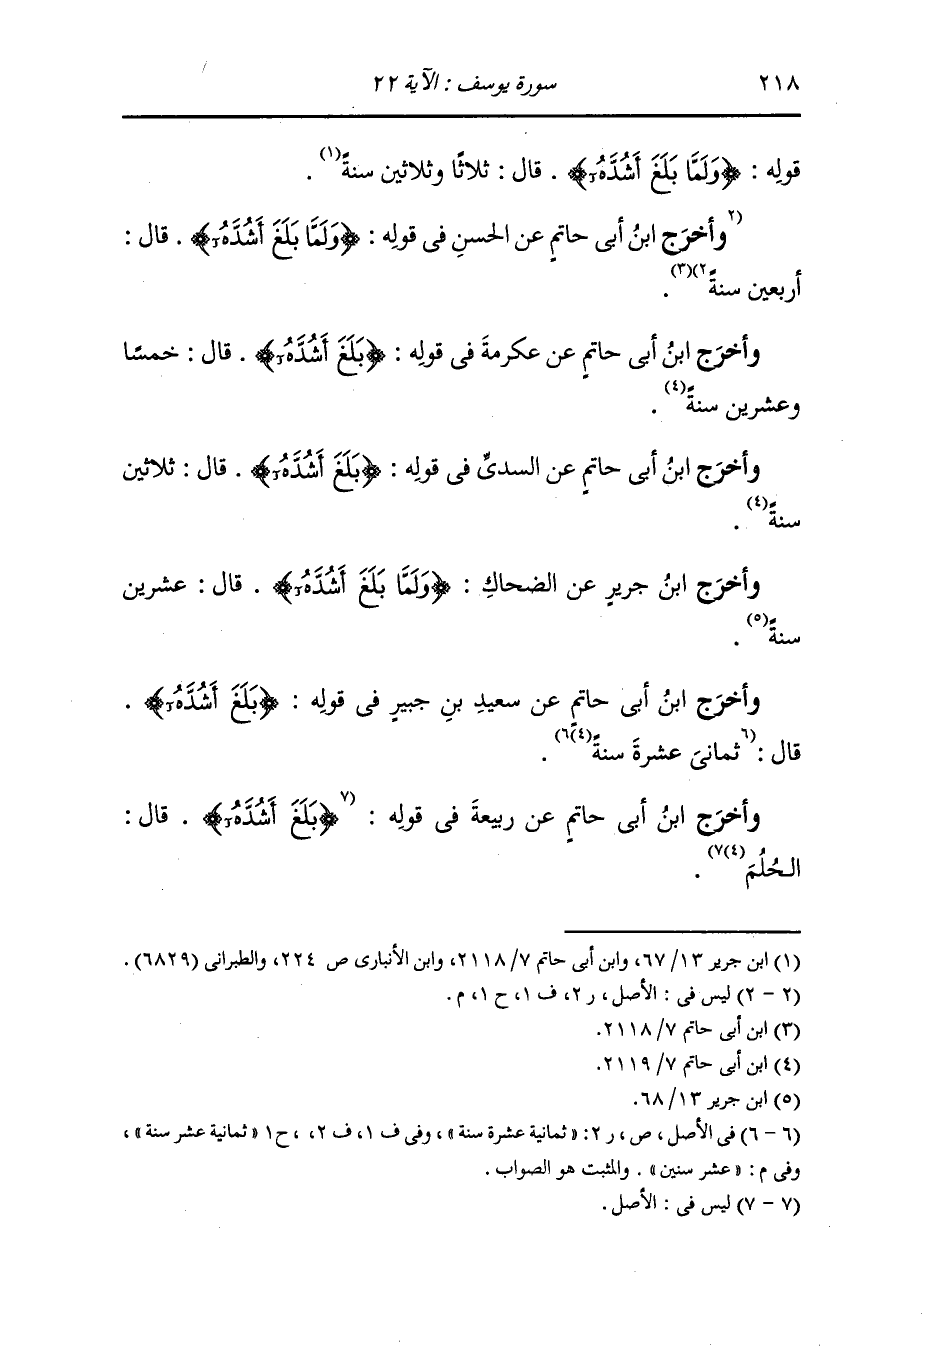 ٢١٨ سورة يوسف : الآية ٢٢
قولِه : ﴿وَلَمَّا بَلَغَ أَشُدَّهُۥ﴾ . قال : ثلاثًا وثلاثين سنةً(١) .
(٢وأخرَج ابنُ أبى حاتمٍ عن الحسنِ فى قولِه : ﴿وَلَمَّا بَلَغَ أَشُدَّهُۥ﴾ . قال :
أربعين سنةً٢)(٣) .
وأخرَج ابنُ أبى حاتمٍ عن عكرمةَ فى قولِه : ﴿بَلَغَ أَشُدَّهُۥ﴾ . قال : خمسًا
وعشرين سنةً(٤) .
وأخرَج ابنُ أبى حاتمٍ عن السدىِّ فى قولِه : ﴿بَلَغَ أَشُدَّهُۥ﴾ . قال : ثلاثين
سنةً(٤) .
وأخرَج ابنُ جريرٍ عن الضحاكِ : ﴿وَلَمَّا بَلَغَ أَشُدَّهُۥ﴾ . قال : عشرين
سنةً(٥) .
وأخرَج ابنُ أبى حاتمٍ عن سعيدِ بنِ جبيرٍ فى قولِه : ﴿بَلَغَ أَشُدَّهُۥ﴾ .
قال :(٦ ثمانىَ عشرةَ سنةً(٤)٦) .
وأخرَج ابنُ أبى حاتمٍ عن ربيعةَ فى قولِه : (٧﴿بَلَغَ أَشُدَّهُۥ﴾ . قال :
الحُلُمَ(٤)٧) .
(١) ابن جرير ١٣/ ٦٧، وابن أبى حاتم ٧/ ٢١١٨، وابن الأنبارى ص ٢٢٤، والطبرانى (٦٨٢٩) .
(٢ - ٢) ليس فى : الأصل، ر ٢، ف ١، ح ١، م .
(٣) ابن أبى حاتم ٧/ ٢١١٨.
(٤) ابن أبى حاتم ٧/ ٢١١٩.
(٥) ابن جرير ١٣/ ٦٨.
(٦ - ٦) فى الأصل، ص، ر ٢: «ثمانية عشرة سنة»، وفى ف ١، ف ٢، ، ح١ «ثمانية عشر سنة»،
وفى م : «عشر سنين» . والمثبت هو الصواب .
(٧ - ٧) ليس فى : الأصل .